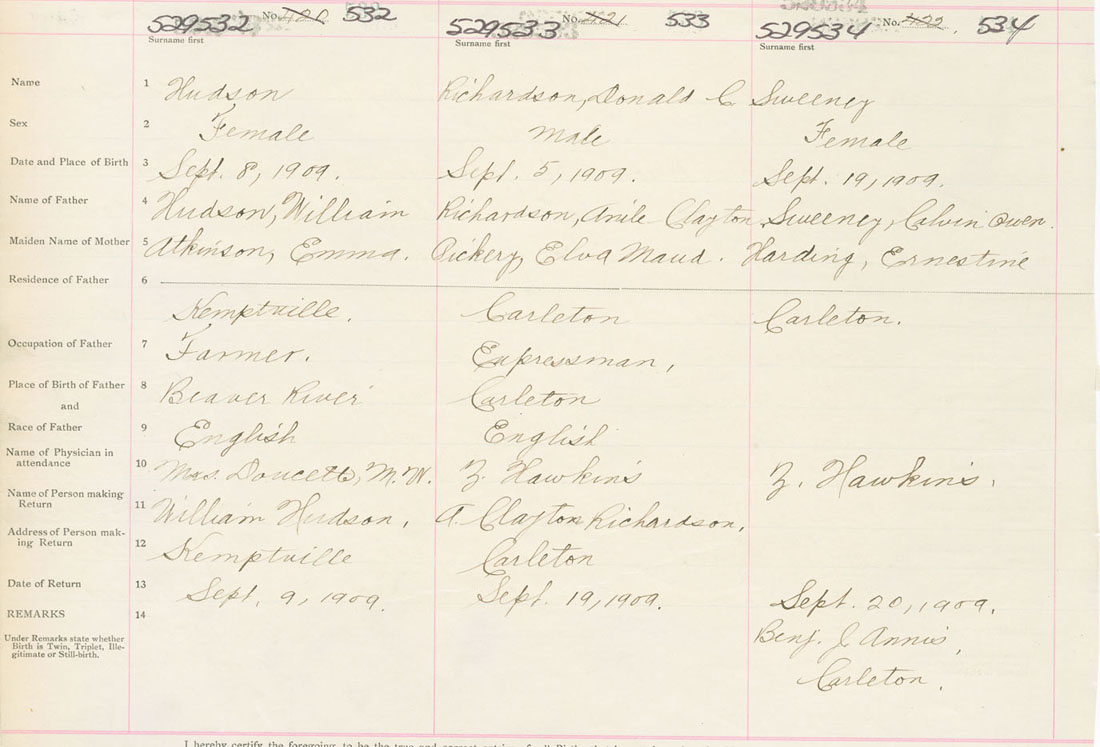 529532 No. 420 532 529533 No. 421 533 529534 No. 422 534
Surname first Surname first Surname first
Name 1 Hudson Richardson, Donald C Sweeney
Sex 2 Female Male Female
Date and Place of Birth 3 Sept. 8, 1909. Sept. 5, 1909. Sept. 19, 1909.
Name of Father 4 Hudson, William Richardson, Clayton Sweeney, Calvin Owen.
Maiden Name of Mother 5 Atkinson, Emma. Elva Maud. Harding, Ernestine
Residence of Father 6
Kemptville. Carleton Carleton.
Occupation of Father 7 Farmer. Expressman,
Place of Birth of Father 8 Beaver River Carleton
and
Race of Father 9 English English
Name of Physician in
attendance 10 Mrs. Doucett, M.W. Z. Hawkins Z. Hawkins.
Name of Person making
Return 11 William Hudson, A. Clayton Richardson,
Address of Person mak-
ing Return 12 Kemptville Carleton
Date of Return 13 Sept. 9, 1909. Sept. 19, 1909. Sept. 20, 1909.
REMARKS 14
Benj. J. Annis,
Under Remarks state whether
Birth is Twin, Triplet, Ille-
gitimate or Still-birth.
Carleton.
I hereby certify the foregoing to be the true and correct